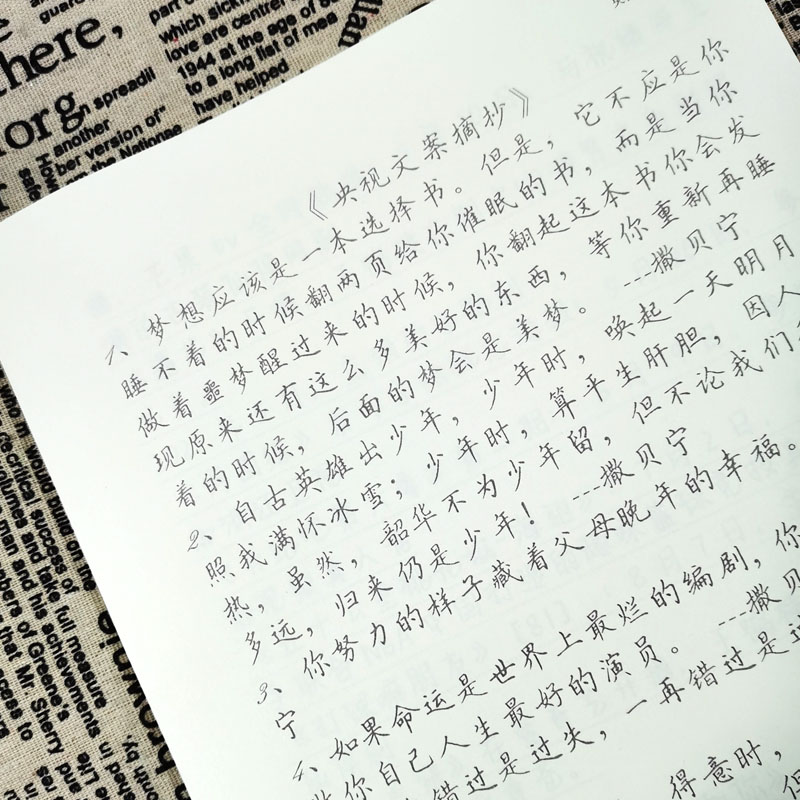 《央视文案摘抄》
1、梦想应该是一本选择书。但是，它不应是你
睡不着的时候翻两页给你催眠的书，而是当你
做着噩梦醒过来的时候，你翻起这本书你会发
现原来还有这么多美好的东西，等你重新再睡
着的时候，后面的梦会是美梦。---撒贝宁
2、自古英雄出少年，少年时，唤起一天明月
照我满怀冰雪；少年时，算平生肝胆，因人
热，虽然，韶华不为少年留，但不论我们
多远，归来仍是少年！---撒贝宁
3、你努力的样子藏着父母晚年的幸福。
宁
如果命运是世界上最烂的编剧，你
你自己人生最好的演员。---撒贝
错过是过失，一再错过是
得意时，
here,
org
spreadil
another
ber version of"
which sickn
love are centred
1944 at the age of
to a long list of
have helped
critical success of
take full measure
man and his achievements
of Greene's
that Mr. Sherry